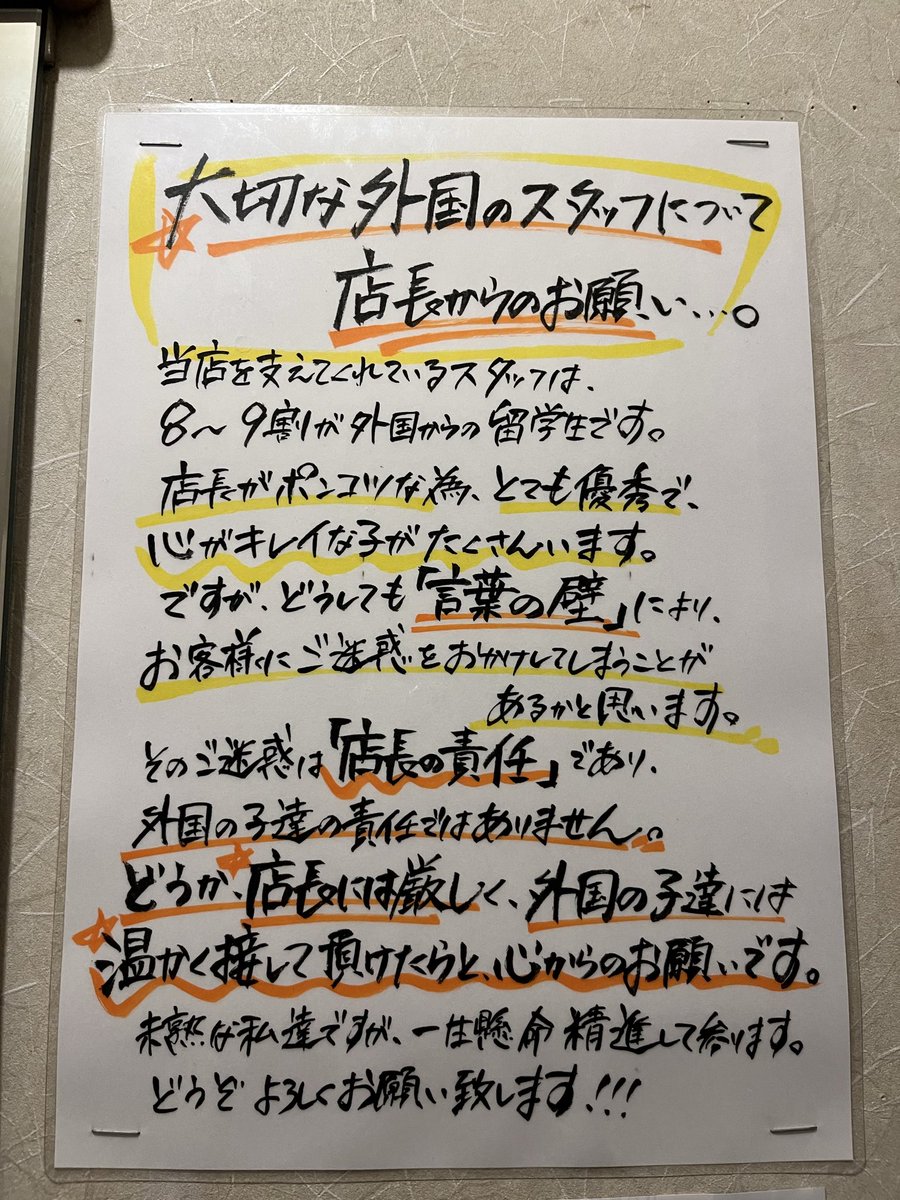 大切な外国のスタッフについて
店長からのお願い…。
当店を支えてくれているスタッフは、
8〜9割が外国からの留学生です。
店長がポンコツな為、とても優秀で、
心がキレイな子がたくさんいます。
ですが、どうしても「言葉の壁」により、
お客様にご迷惑をおかけしてしまうことが
あるかと思います。
そのご迷惑は「店長の責任」であり、
外国の子達の責任ではありません。
どうか、店長には厳しく、外国の子達には
温かく接して頂けたらと、心からのお願いです。
未熟な私達ですが、一生懸命精進して参ります。
どうぞよろしくお願い致します!!!